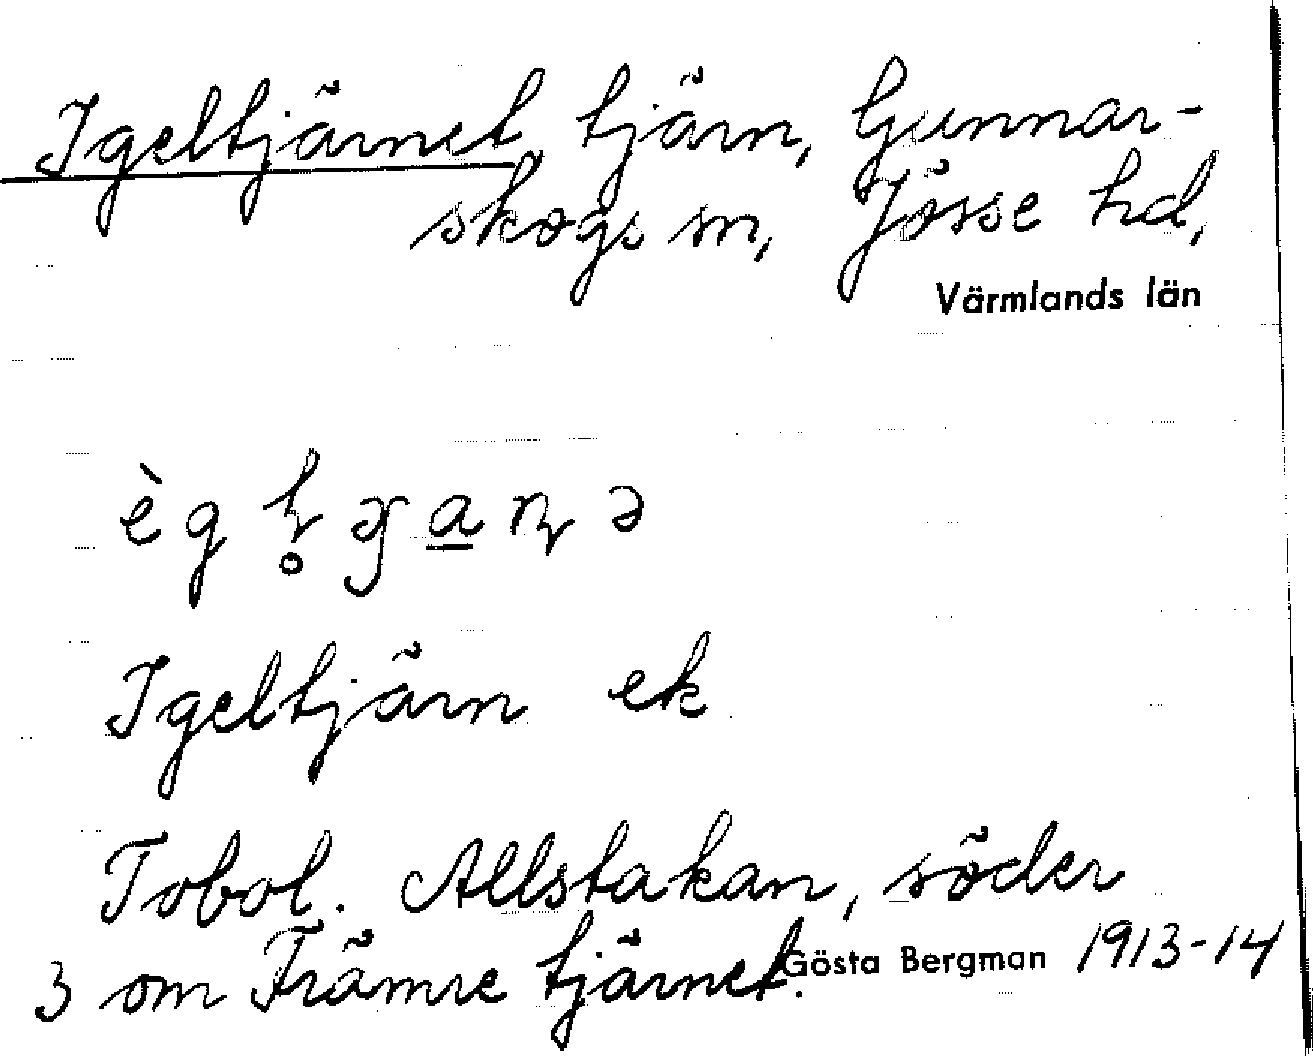 Igeltjärnet, tjärn, Gunnar-
skogs sn, Jösse hd,
Värmlands län
Igeltjärn ek
Tobol. Allstakan, söder
3 om Främre tjärnet.
Gösta Bergman 1913-14